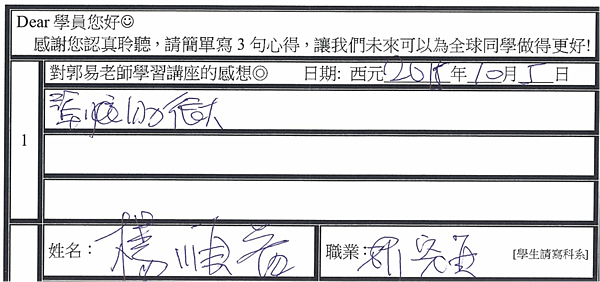 Dear 學員您好☺
感謝您認真聆聽，請簡單寫 3 句心得，讓我們未來可以為全球同學做得更好!
對郭易老師學習講座的感想◎ 日期: 西元 2015 年 10 月 5 日
1
姓名： 楊順
職業： 研究生 [學生請寫科系]